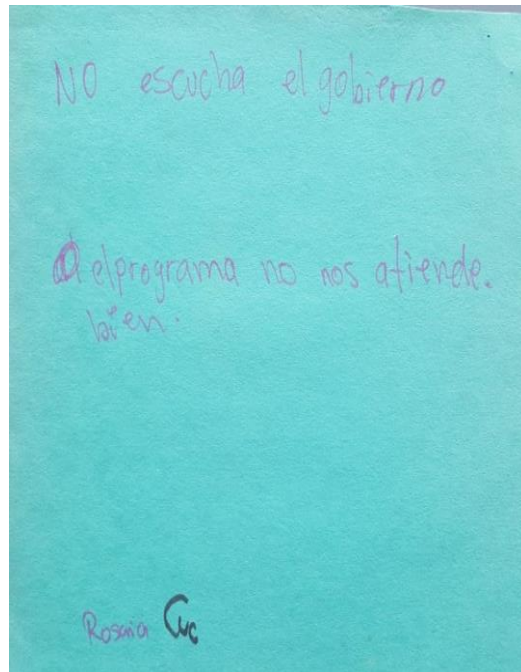 NO escucha el gobierno
el programa no nos atiende.
bien.
Cuc